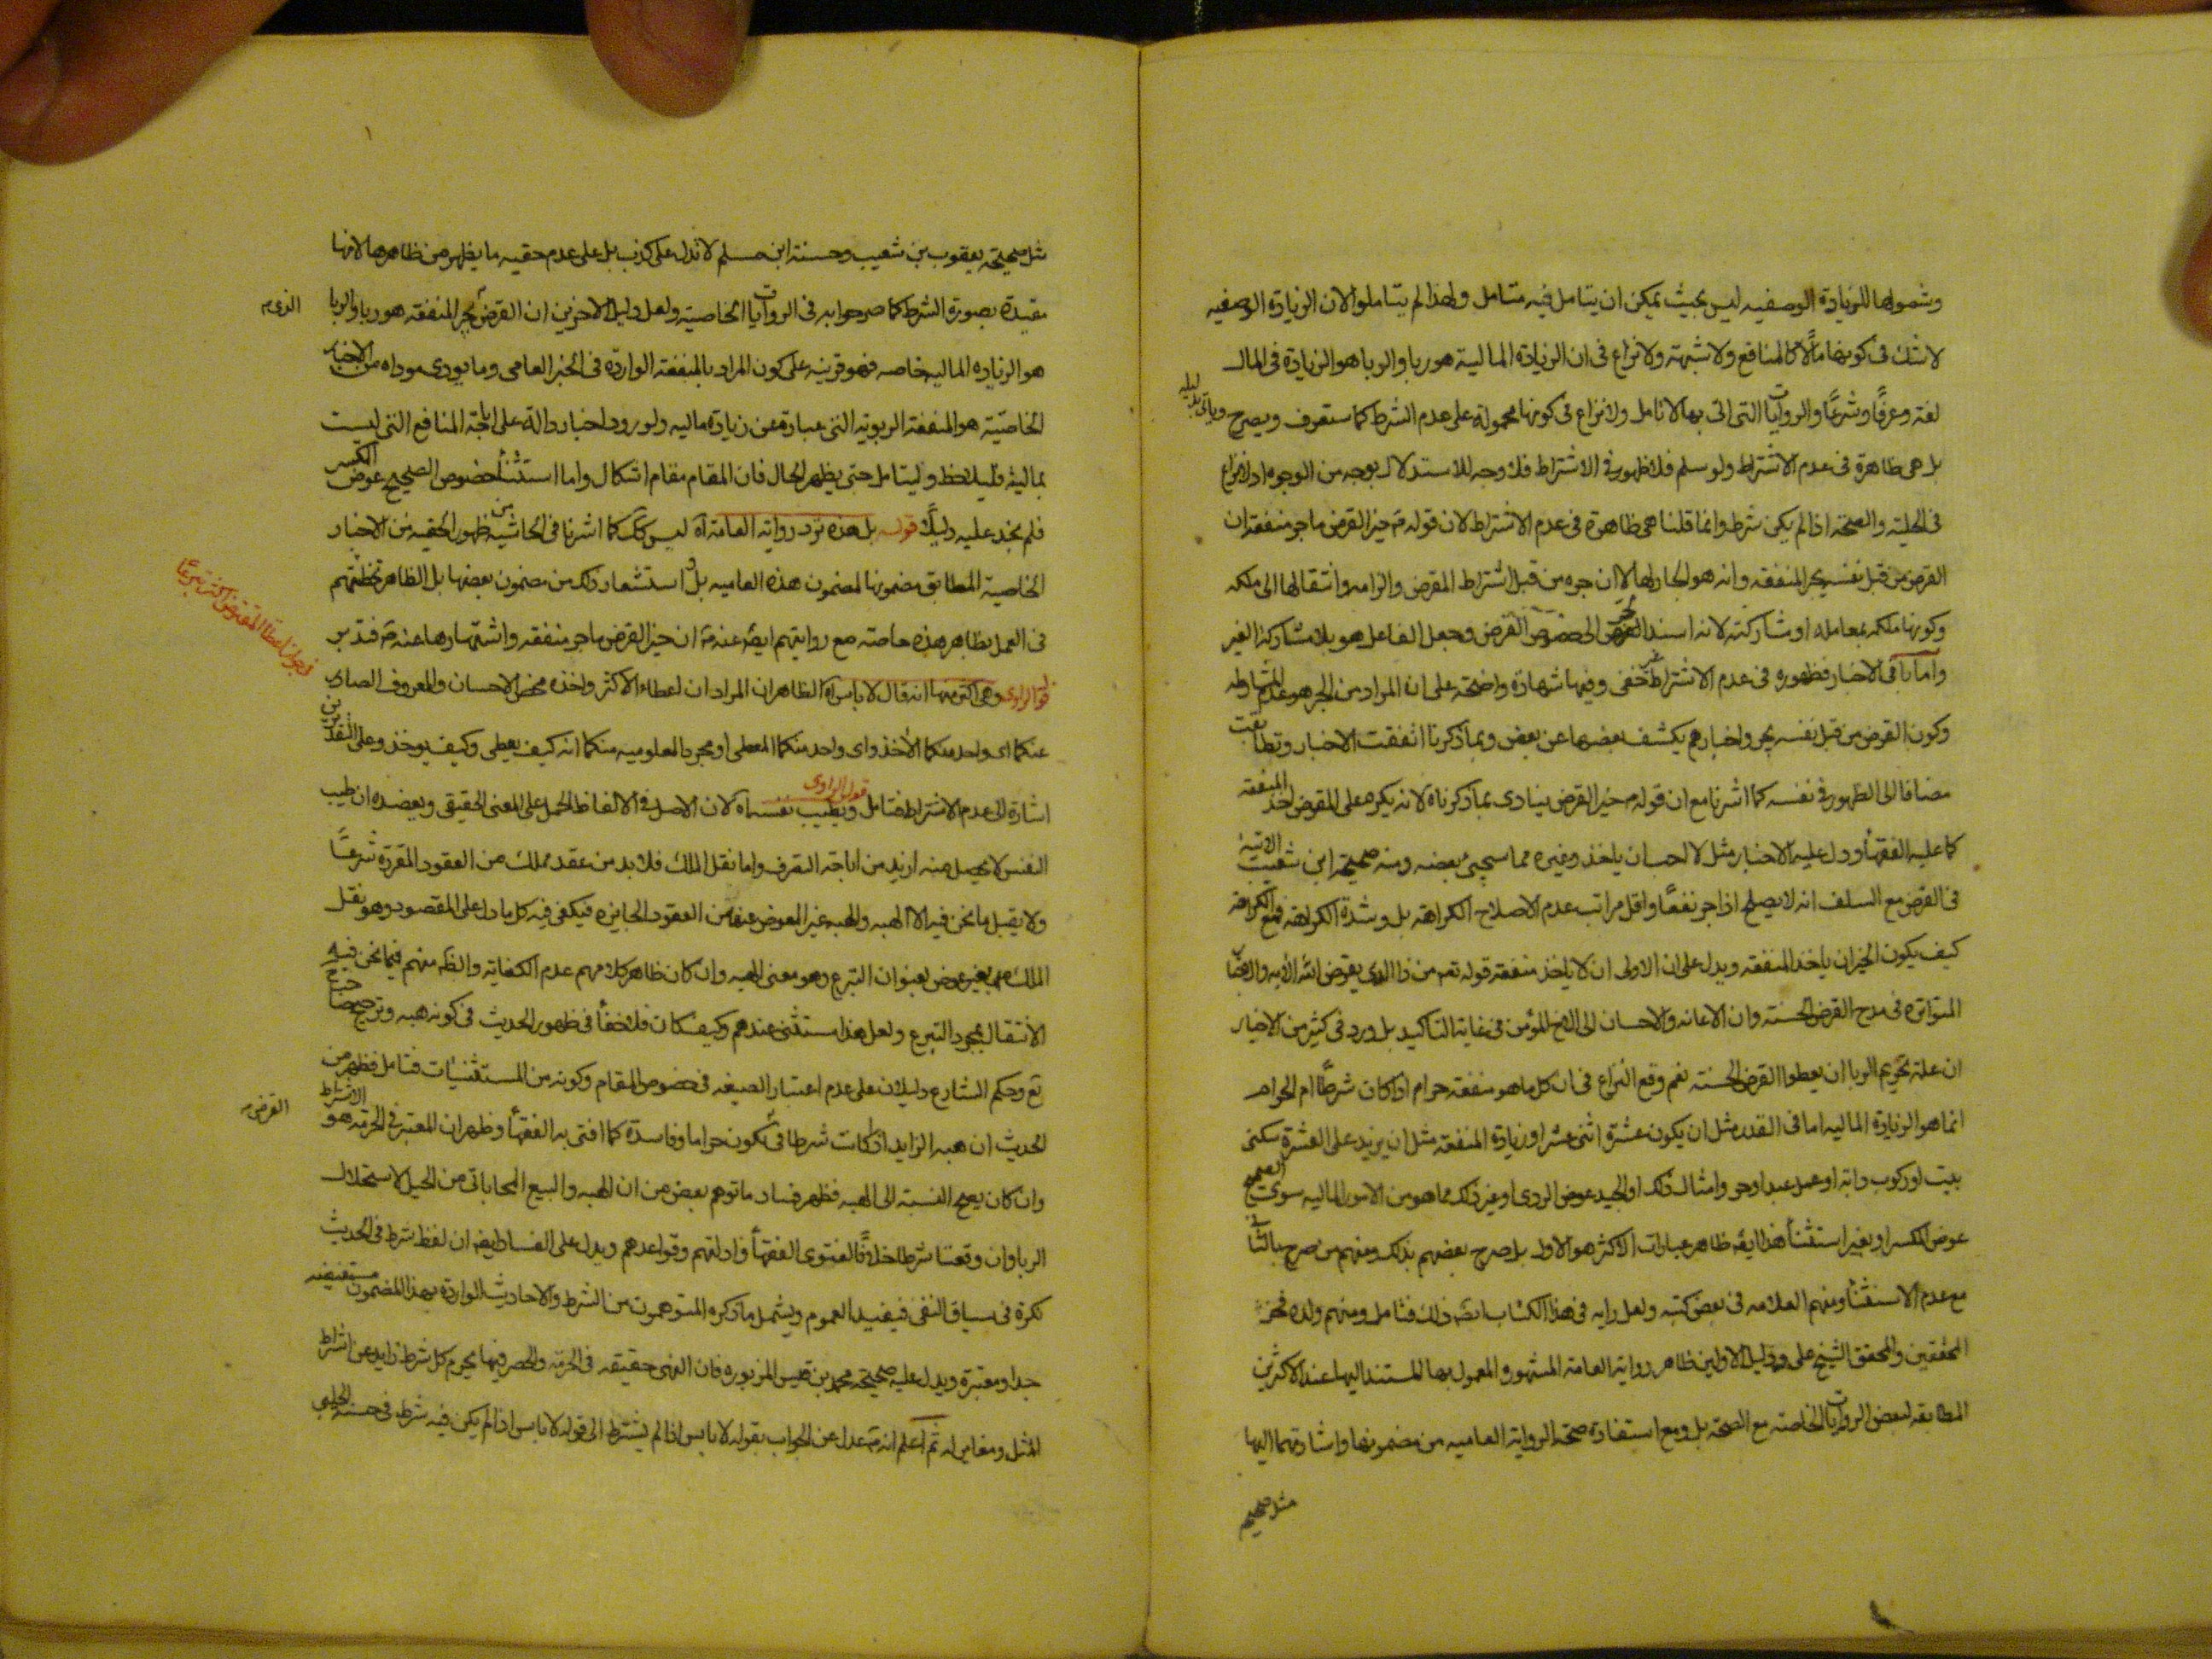 وشمولها للزيادة الوصفيه ليس بحيث يمكن ان يتامل فيه متامل ولهذا لم يتاملوا لان الزيادة الوصفيه
لاشك فى كونها مالاً كالمنافع ولا شبهة ولا نزاع فى ان الزيادة المالية هو ربا والربا هو الزيادة فى المال
لغة وعرفًا وشرعًا والروايات التى اتى بها لا تامل ولا نزاع فى كونها محمولة على عدم الشرط كما ستعرف ويصرح وياتى
بل هى ظاهرة فى عدم الاشتراط ولو سلم فلا ظهور فى الاشتراط فلا وجه للاستدلال بوجه من الوجوه اذ لا نزاع
فى الحلية والصحة اذا لم يكن شرط وانما قلنا هى ظاهرة فى عدم الاشتراط لان قوله خير القرض ما جر منفعة ان
القرض من قبل نفسه يجر المنفعه وانه هو الجار لها لا ان جره من قبل اشتراط المقرض والزامه وانتقالها الى ملكه
وكونها ملكه بمعامله او مشاركته لانه اسند الجر الى خصوص القرض وجعل الفاعل هو بلا مشاركة الغير
واما باقى الاخبار فظهوره فى عدم الاشتراط غير خفى وفيها شهادة واضحة على ان المراد من الجر هو عدم
وكون القرض من قبل نفسه يجر واخبارهم يكشف بعضها عن بعض وبما ذكرنا اتفقت الاخبار وتطابقت
مضافا الى الظهور فى نفسه كما اشرنا مع ان قوله خير القرض ينادى بما ذكرناه لانه يكره على المقرض اخذ المنفعة
كما عليه الفقهاء ودل عليه الاخبار مثل لا احب ان ياخذ وغيره مما سيجئ بعضه ومنه صحيحة ابن شعيب الاتية
فى القرض مع السلف انه لا يصلح اذا جر نفعًا واقل مراتب عدم الاصلاح الكراهة بل وشدة الكراهة فمع الكراهة
كيف يكون الخير ان ياخذ المنفعه ويدل على ان الاولى ان لا ياخذ منفعة قوله تعه من ذا الذى يقرض الله الايه والاخبار
المتواترة فى مدح القرض الحسنة وان الاعانه والاحسان الى الاخ المؤمن فى غاية التاكيد بل ورد فى كثير من الاخبار
ان علة تحريم الربا ان يعطوا القرض الحسنة نعم وقع النزاع فى ان كل ما هو منفعة حرام اذا كان شرطًا ام الحرام
انما هو الزيادة الماليه اما فى القدر مثل ان يكون عشرة اثنى عشر او زيادة المنفعة مثل ان يزيد على العشرة سكنى
بيت او ركوب دابه او عمل عبد او حر وامثال ذلك او الجيد عوض الردى او غير ذلك مما هو من الامور الماليه سوى الصحيح
عوض المكسر او بغير استثناء هذا ايضه ظاهر عبارات الاكثر هو الاول بل صرح بعضهم بذلك ومنهم من صرح بالثانى
مع عدم الاستثناء ومنهم العلامه فى بعض كتبه ولعل رايه فى هذا الكتاب ايضه ذلك فتامل ومنهم ولده فخر
المحققين والمحقق الشيخ على ودليل الاولين ظاهر رواية العامة المشهور المعمول بها المستند اليها عند الاكثرين
المطابقه لبعض الروايات الخاصة مع الصحة بل ومع استفادة صحة الرواية العاميه من مضمونها واشارتهما اليها
مثل صحيحه
مثل صحيحة يعقوب بن شعيب وحسنة ابن مسلم لا تدل على كذب بل على عدم حقيه ما يظهر من ظاهرها لانها
مقيدة بصورة الشرط كما صرحوا به فى الروايات الخاصية ولعل دليل الاخرين ان القرض يجر المنفعه هو ربا والربا
هو الزياده الماليه خاصه فهو قرينه على كون المراد بالمنفعة الواردة فى الخبر العامى وما يودى موداه من الاخبار
الخاصيّة هو المنفعة الربويه التى عبارة عن زيادة ماليه ولورود اخبار دالة على اباحة المنافع التى ليست
بمالية فليلاحظ وليتامل حتى يظهر الحال فان المقام مقام اشكال واما استثناء خصوص الصحيح عوض الكسر
فلم نجد عليه دليلاً قوله بل هذه ترد رواية العامة اه ليس كك كما اشرنا فى الحاشيه من ظهور الحقيه من الاخبار
الخاصية المطابق مضمونها لمضمون هذه العاميه بل استشعار ذلك من مضمون بعضها بل الظاهر تخطئتهم
فى العمل بظاهر هذه خاصة مع روايتهم ايضه عنه ان خير القرض ما جر منفعه واشتهارها عنه فتدبر
قول الراوى وهى اكثر منها انه قال لا باس اه الظاهر ان المراد ان اعطاء الاكثر واخذه محض الاحسان والمعروف الصادر
عنكما اى واحد منكما الاخذ واى واحد منكما المعطى او مجرد المعلوميه منكما انه كيف يعطى وكيف يوخذ وعلى التقديرين
اشارة الى عدم الاشتراط فتامل قول الراوى ويطيب نفسه اه لان الاصل فى الالفاظ الحمل على المعنى الحقيقى ويعضده ان طيب
النفس لا يحصل منه ازيد من اباحة التصرف واما نقل الملك فلا بد من عقد مملك من العقود المقررة شرعًا
ولا يقبل ما نحن فيه الا الهبه والهبه غير المعوض عنها من العقود الجايزه فيكفى فيه كل ما دل على المقصود وهو نقل
الملك بغير عوض بعنوان التبرع وهو معنى الهبه وان كان ظاهر كلامهم عدم الكفاية والظه منهم فيما نحن فيه
الانتقال بمجرد التبرع ولعل هذا مستثنى عندهم وكيف كان فلا خفأ فى ظهور الحديث فى كونه هبه وترجيح
تع وحكم الشارع دليلان على عدم اعتبار الصيغه فى خصوص المقام وكونه من المستثنيات فتامل فظهر من
الحديث ان هبه الزايد اذا كانت شرطا فى تكون حراما وفاسدة كما افتى به الفقهأ وظهر ان المعتبر فى الحرمة هو الاشتراط
وان كان يصح النسبة الى الهبه فظهر فساد ما توهم بعض من ان الهبه والبيع المحاباتى من الحيل لاستحلال
الربا وان وقعتا شرطا خلافًا لفتوى الفقهأ وادلتهم وقواعدهم ويدل على الفساد ايضه ان لفظ شرط فى الحديث
نكرة فى سياق النفى فيفيد العموم ويشمل ما ذكره المتوهمون من الشرط والاحاديث الواردة بهذا المضمون مستفيضه
جدا ومعتبرة ويدل عليه صحيحة محمد بن قيس المزبوره فان النهى حقيقه فى الحرمة والحصر فيها يحرم كل شرط زايد عن اشتراط
المثل ومغاير له ثم اعلم انه عدل عن الجواب بقوله لا باس اذا لم يشترط الى قوله لا باس اذا لم يكن فيه شرط فى حسنة الحلبى
الذى
القرض